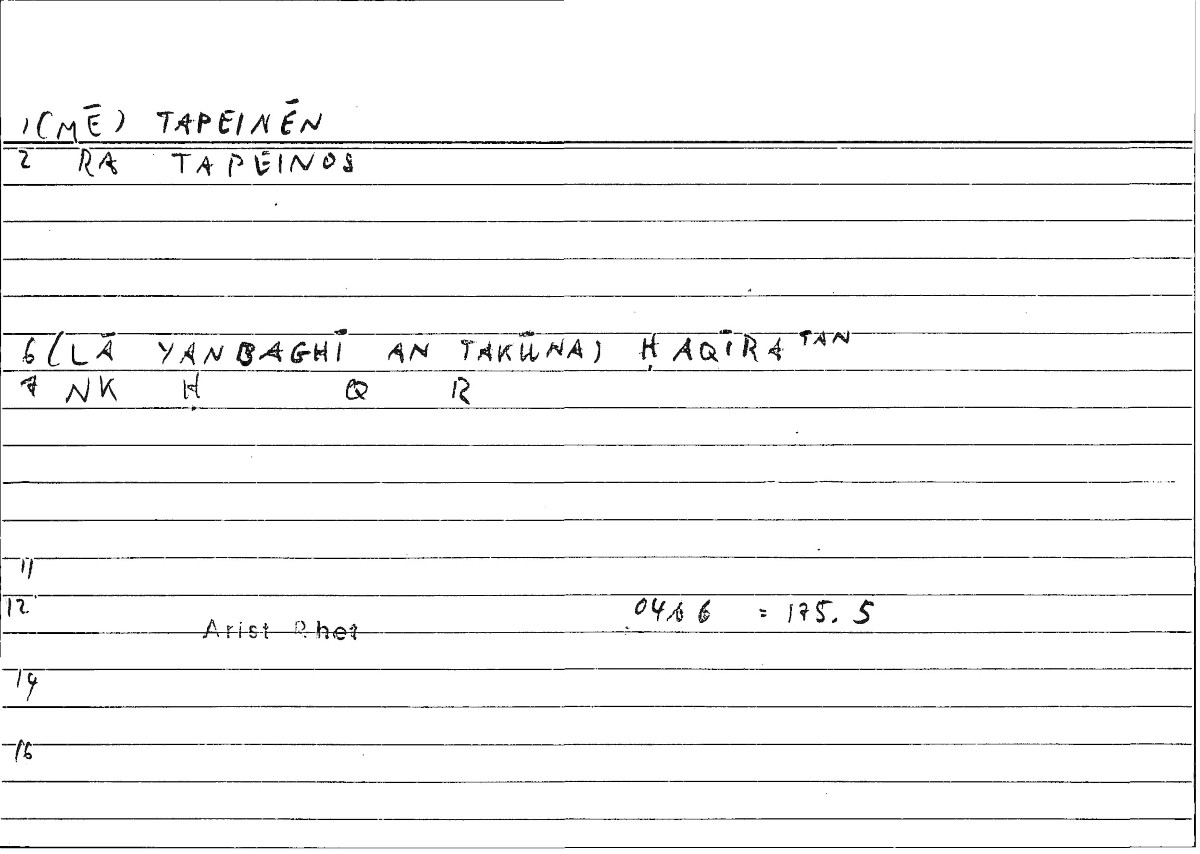 1 (MĒ) TAPEINĒN
2 RA TAPEINOS
6 (LĀ YANBAGHĪ AN TAKŪNA) ḤAQĪRATAN
7 NK Ḥ Q R
11
12
Arist Rhet = 175.5
14
16